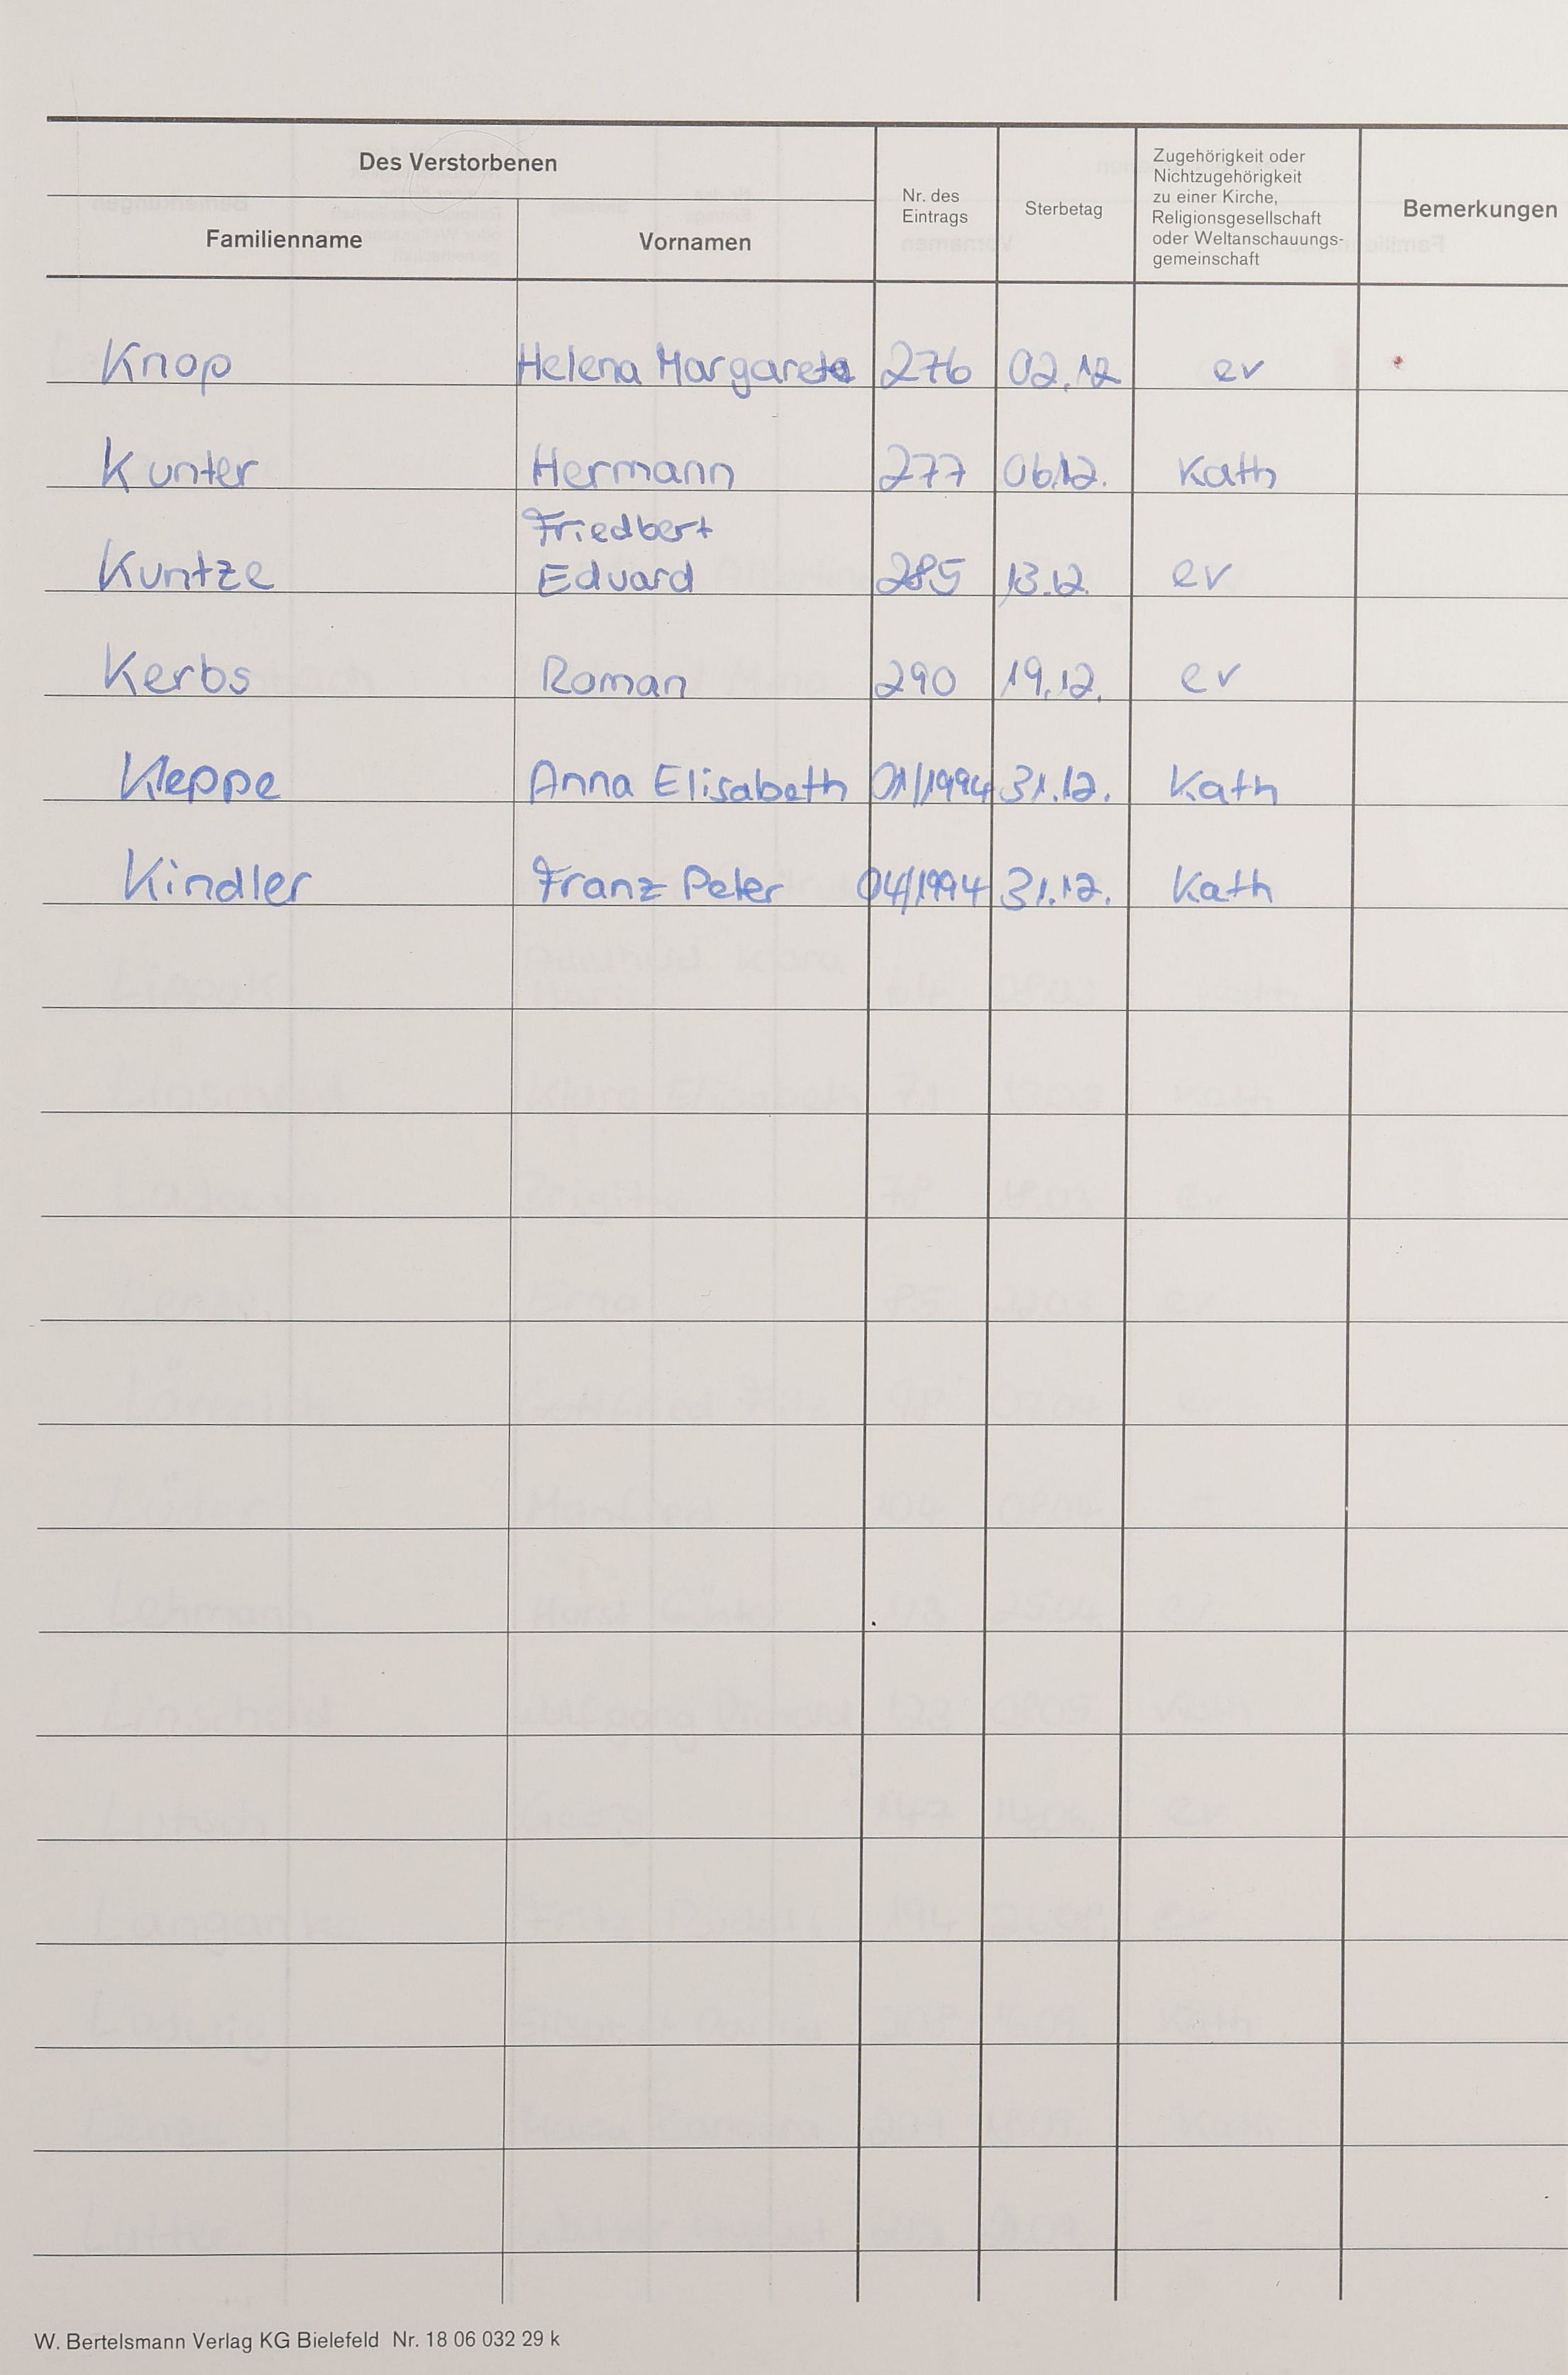 Des Verstorbenen
Familienname
Vornamen
Nr. des
Eintrags
Sterbetag
Zugehörigkeit oder
Nichtzugehörigkeit
zu einer Kirche,
Religionsgesellschaft
oder Weltanschauungs-
gemeinschaft
Bemerkungen
Knop Helena Margareta 276 02.12 ev
Kunter Hermann 277 06.12. Kath
Friedbert
Kuntze Eduard 285 13.12. ev
Kerbs Roman 290 19.12. ev
Kleppe Anna Elisabeth 01/1994 31.12. Kath
Kindler Franz Peter 04/1994 31.12. Kath
W. Bertelsmann Verlag KG Bielefeld Nr. 18 06 032 29 k